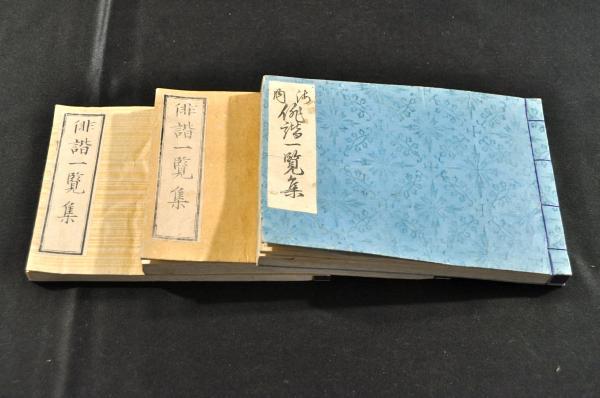 俳諧一覧集
俳諧一覧集
俳諧一覧集